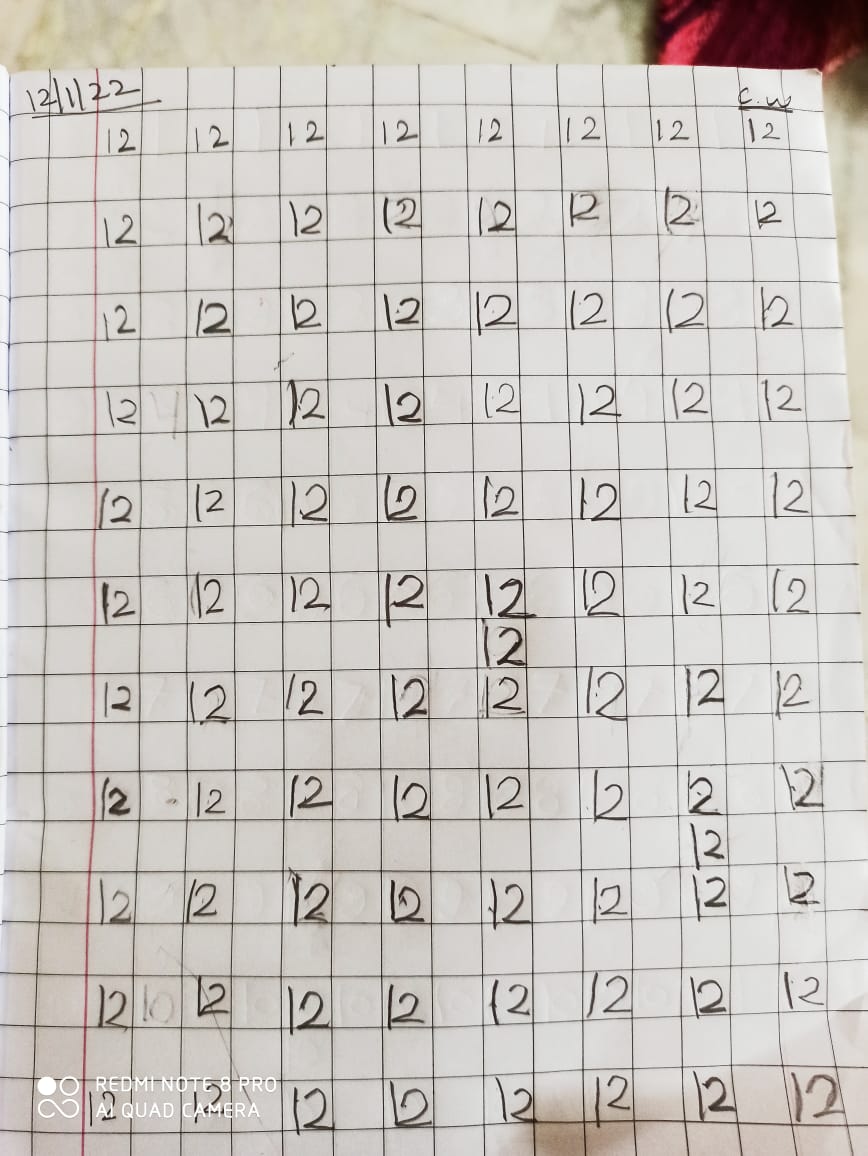 12/1/22 C.W
12 12 12 12 12 12 12 12
12 12 12 12 12 12 12 12
12 12 12 12 12 12 12 12
12 12 12 12 12 12 12 12
12 12 12 12 12 12 12 12
12 12 12 12 12 12 12 12
12
12 12 12 12 12 12 12 12
12 12 12 12 12 12 12 12
12
12 12 12 12 12 12 12 12
12 10 12 12 12 12 12 12 12
12 12 12 12 12 12 12 12
REDMI NOTE 8 PRO
AI QUAD CAMERA